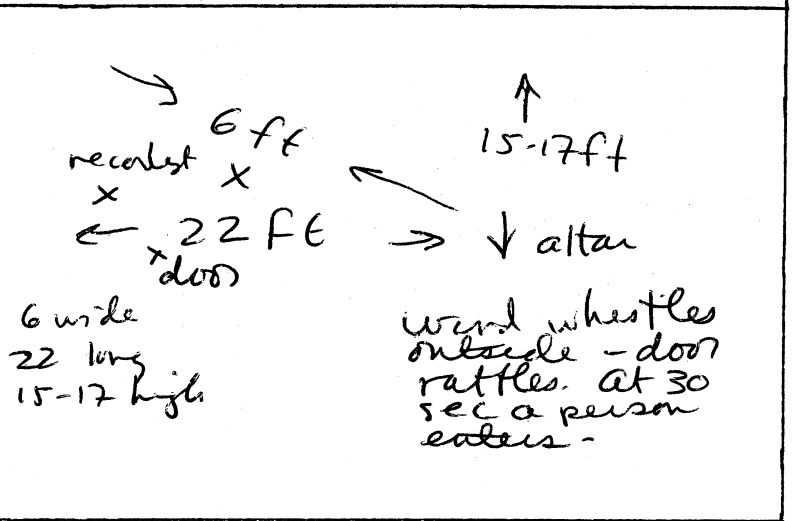 6 ft
15-17ft
recordist
x
x
22 Ft
altar
x
door
6 wide
22 long
15-17 high
wind whistles
outside - door
rattles. at 30
sec a person
enters -